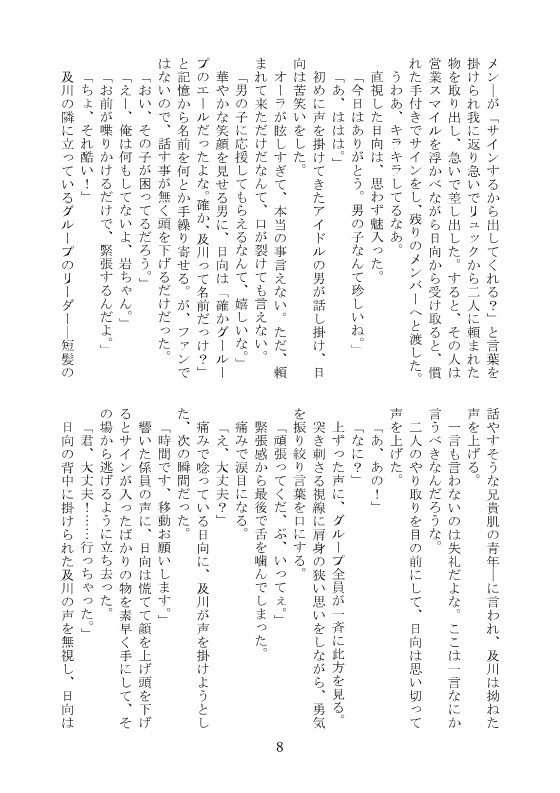 メンーが「サインするから出してくれる？」と言葉を
掛けられ我に返り急いでリュックから二人に頼まれた
物を取り出し、急いで差し出した。すると、その人は
営業スマイルを浮かべながら日向から受け取ると、慣
れた手付きでサインをし、残りのメンバーへと渡した。
うわあ、キラキラしてるなあ。
直視した日向は、思わず魅入った。
「今日はありがとう。男の子なんて珍しいね。」
「あ、ははは。」
初めに声を掛けてきたアイドルの男が話し掛け、日
向は苦笑いをした。
オーラが眩しすぎて、本当の事言えない。ただ、頼
まれて来ただけだなんて、口が裂けても言えない。
「男の子に応援してもらえるなんて、嬉しいな。」
華やかな笑顔を見せる男に、日向は「確かグールー
プのエールだったよな。確か、及川って名前だっけ？」
と記憶から名前を何とか手繰り寄せる。が、ファンで
はないので、話す事が無く頭を下げるだけだった。
「おい、その子が困ってるだろう。」
「えー、俺は何もしてないよ、岩ちゃん。」
「お前が喋りかけるだけで、緊張するんだよ。」
「ちょ、それ酷い！」
及川の隣に立っているグループのリーダー―短髪の
話やすそうな兄貴肌の青年―に言われ、及川は拗ねた
声を上げる。
一言も言わないのは失礼だよな。ここは一言なにか
言うべきなんだろうな。
二人のやり取りを目の前にして、日向は思い切って
声を上げた。
「あ、あの！」
「なに？」
上ずった声に、グループ全員が一斉に此方を見る。
突き刺さる視線に肩身の狭い思いをしながら、勇気
を振り絞り言葉を口にする。
「頑張ってくだ、ぶ、いってぇ。」
緊張感から最後で舌を噛んでしまった。
痛みで涙目になる。
「え、大丈夫？」
痛みで唸っている日向に、及川が声を掛けようとし
た、次の瞬間だった。
「時間です、移動お願いします。」
響いた係員の声に、日向は慌てて顔を上げ頭を下げ
るとサインが入ったばかりの物を素早く手にして、そ
の場から逃げるように立ち去った。
「君、大丈夫！……行っちゃった。」
日向の背中に掛けられた及川の声を無視し、日向は
8